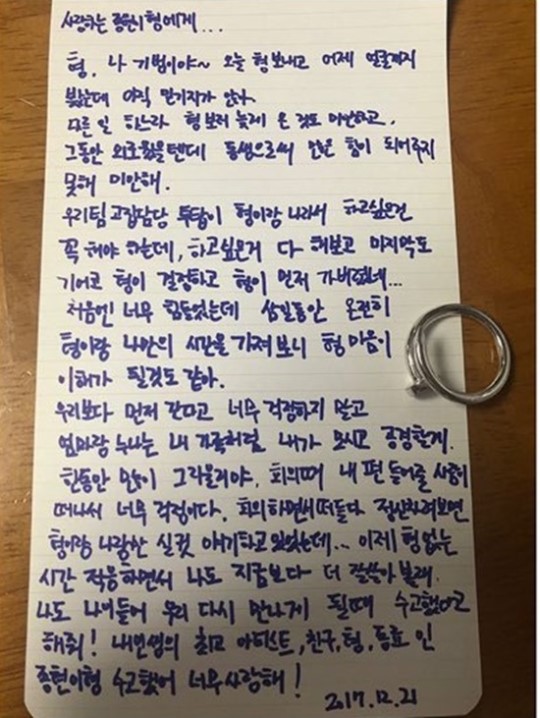 사랑하는 종현이형에게...
형. 나 기범이야~ 오늘 형 보내고 어제 얼굴까지
봤는데 아직 믿기지가 않아.
다른 일 하느라 형 보러 늦게 온 것도 미안하고,
그동안 외로웠을텐데 동생으로써 많은 힘이 되어주지
못해 미안해.
우리팀 고집담당 투탑이 형이랑 나라서 하고싶은건
꼭 해야 하는데, 하고싶은거 다 해보고 마지막도
기어코 형이 결정하고 형이 먼저 가버렸네...
처음엔 너무 힘들었는데 삼일동안 온전히
형이랑 나만의 시간을 가져보니 형 마음이
이해가 될것도 같아.
우리보다 먼저 간다고 너무 걱정하지 말고
엄마랑 누나는 내 가족처럼 내가 모시고 공경할게.
한동안 많이 그리울거야. 회의때 내 편 들어줄 사람이
떠나서 너무 걱정이다. 회의하면서 떠들다 정신차려보면
형이랑 나랑만 실컷 얘기하고 있었는데... 이제 형 없는
시간 적응하면서 나도 지금보다 더 잘살아 볼래.
나도 나이들어 우리 다시 만나게 될때 수고했다고
해줘! 내인생의 최고 아티스트, 친구, 형, 동료 인
종현이형 수고했어 너무 사랑해!
2017.12.21